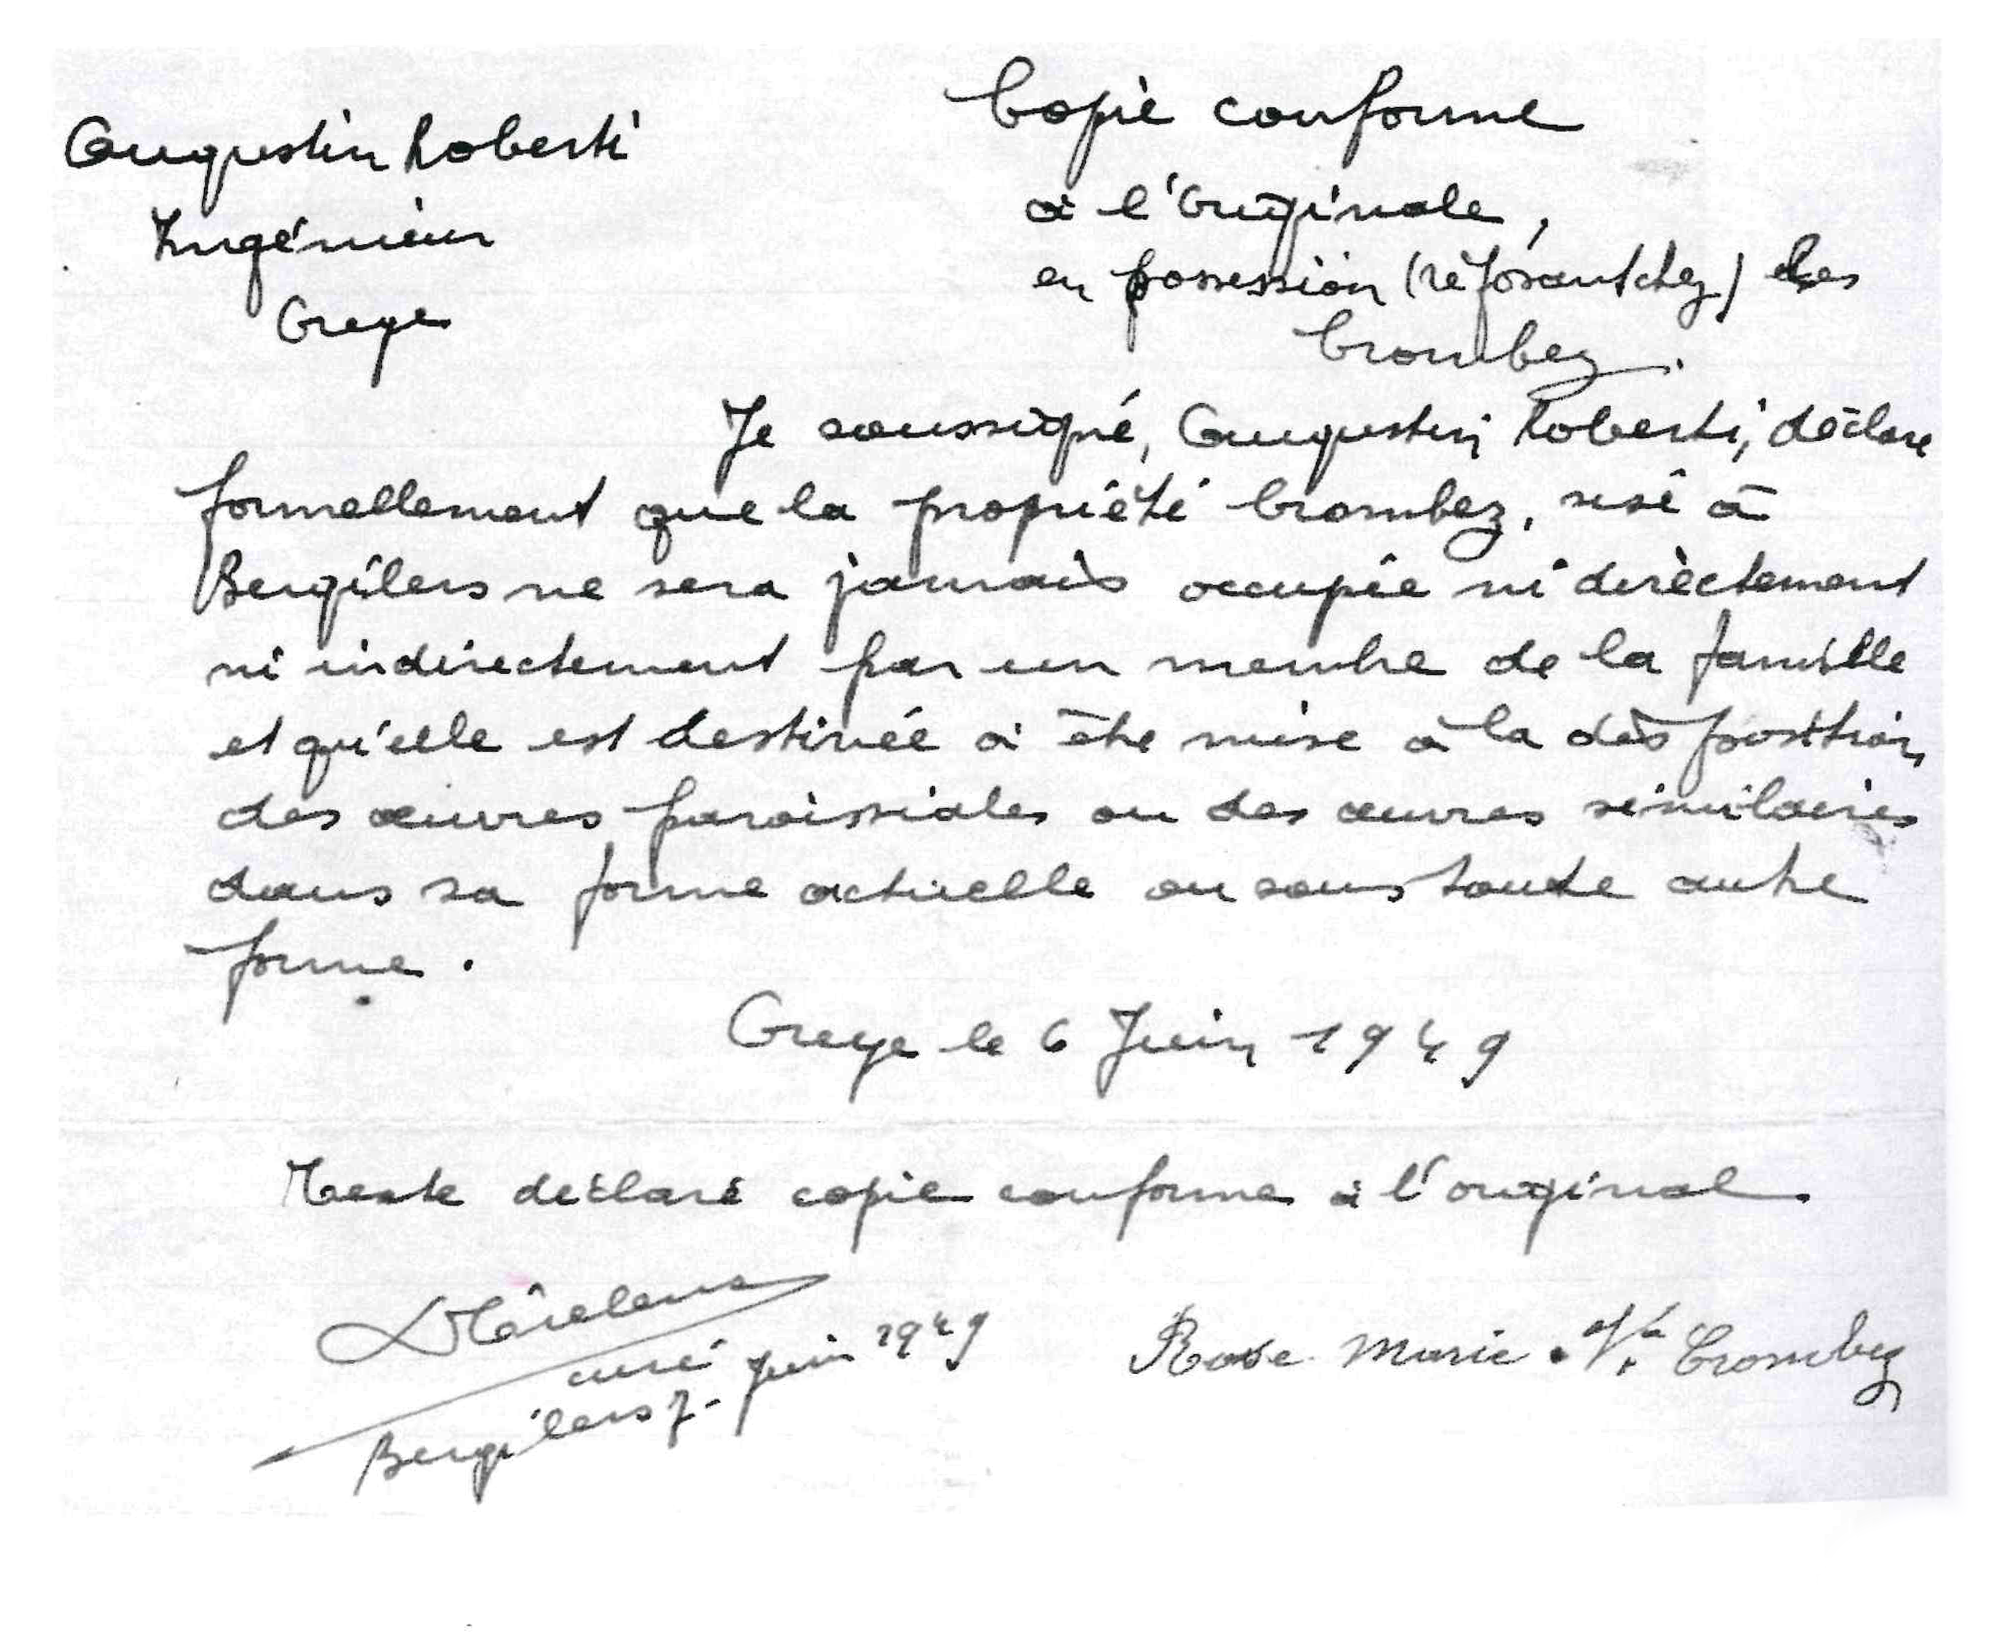 Augustin Roberti
Ingénieur
Oreye
Copie conforme
à l'Originale,
en possession (réposant chez) les
Crombez.
Je soussigné, Augustin Roberti, déclare
formellement que la propriété Crombez, sise à
Bergilers ne sera jamais occupée ni directement
ni indirectement par un membre de la famille
et qu'elle est destinée à être mise à la disposition
des œuvres paroissiales ou des œuvres similaires
dans sa forme actuelle ou sous toute autre
forme.
Oreye le 6 Juin 1949
Texte déclaré copie conforme à l'original.
curé
Bergilers 7- juin 1949
Rose Marie Crombez